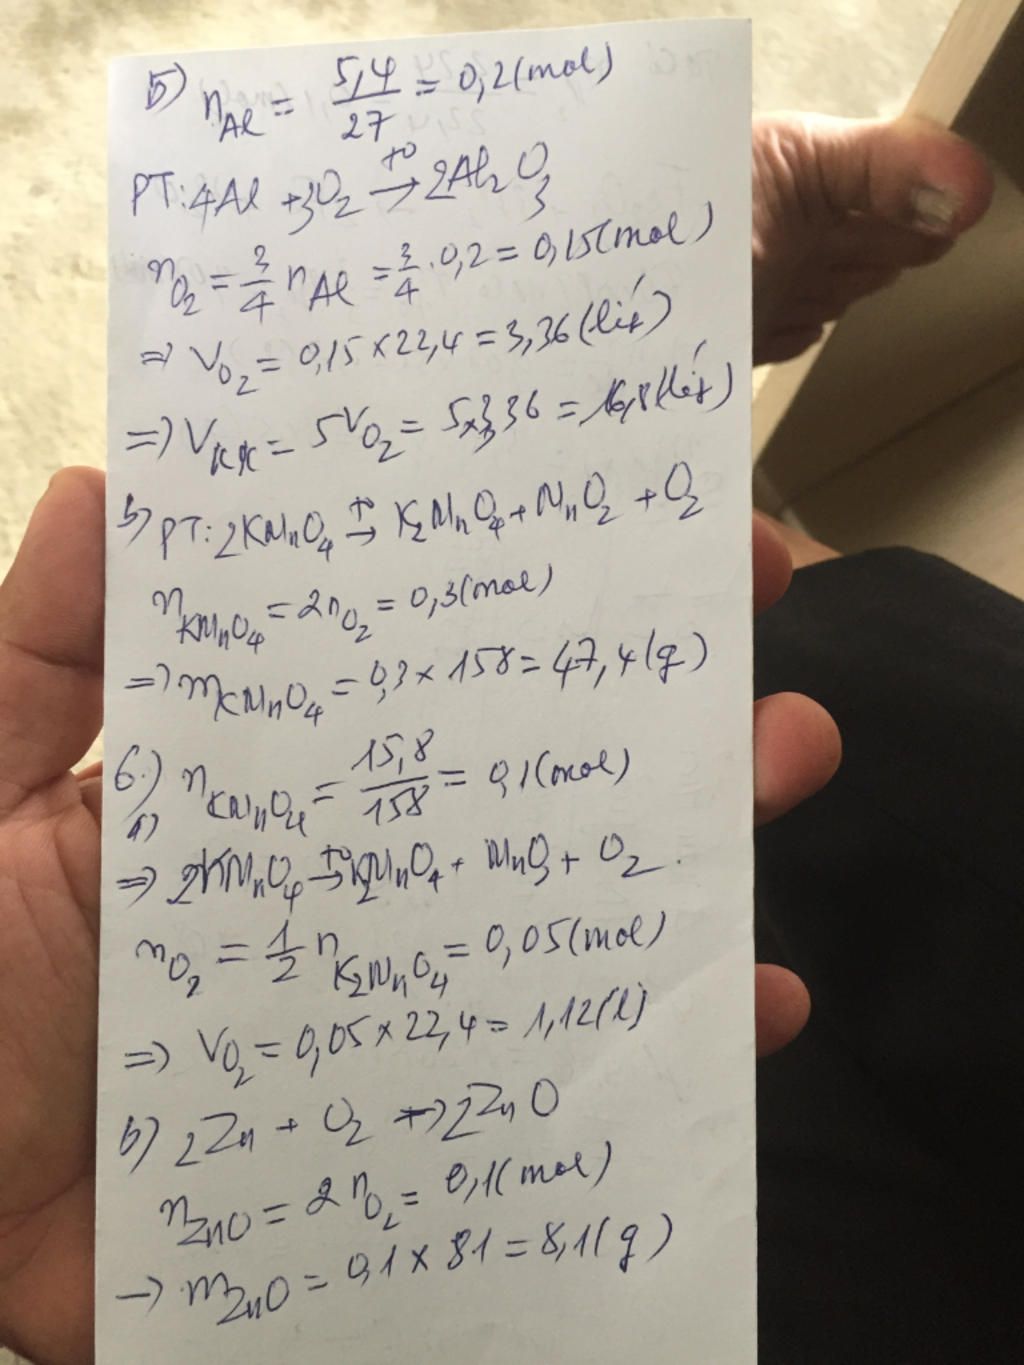 5) nAl = 5,4/27 = 0,2 (mol)
PT: 4Al + 3O2 t°→ 2Al2O3
nO2 = 3/4 nAl = 3/4 . 0,2 = 0,15 (mol)
=> VO2 = 0,15 x 22,4 = 3,36 (lít)
=> VKK = 5VO2 = 5x3,36 = 16,8 (lít)
b) PT: 2KMnO4 t°→ K2MnO4 + MnO2 + O2
nKMnO4 = 2nO2 = 0,3 (mol)
=> mKMnO4 = 0,3 x 158 = 47,4 (g)
6.) nKMnO4 = 15,8/158 = 0,1 (mol)
a)
=> 2KMnO4 t°→ K2MnO4 + MnO2 + O2.
nO2 = 1/2 nK2MnO4 = 0,05 (mol)
=> VO2 = 0,05 x 22,4 = 1,12 (l)
b) 2Zn + O2 → 2ZnO
nZnO = 2nO2 = 0,1 (mol)
→ mZnO = 0,1 x 81 = 8,1 (g)